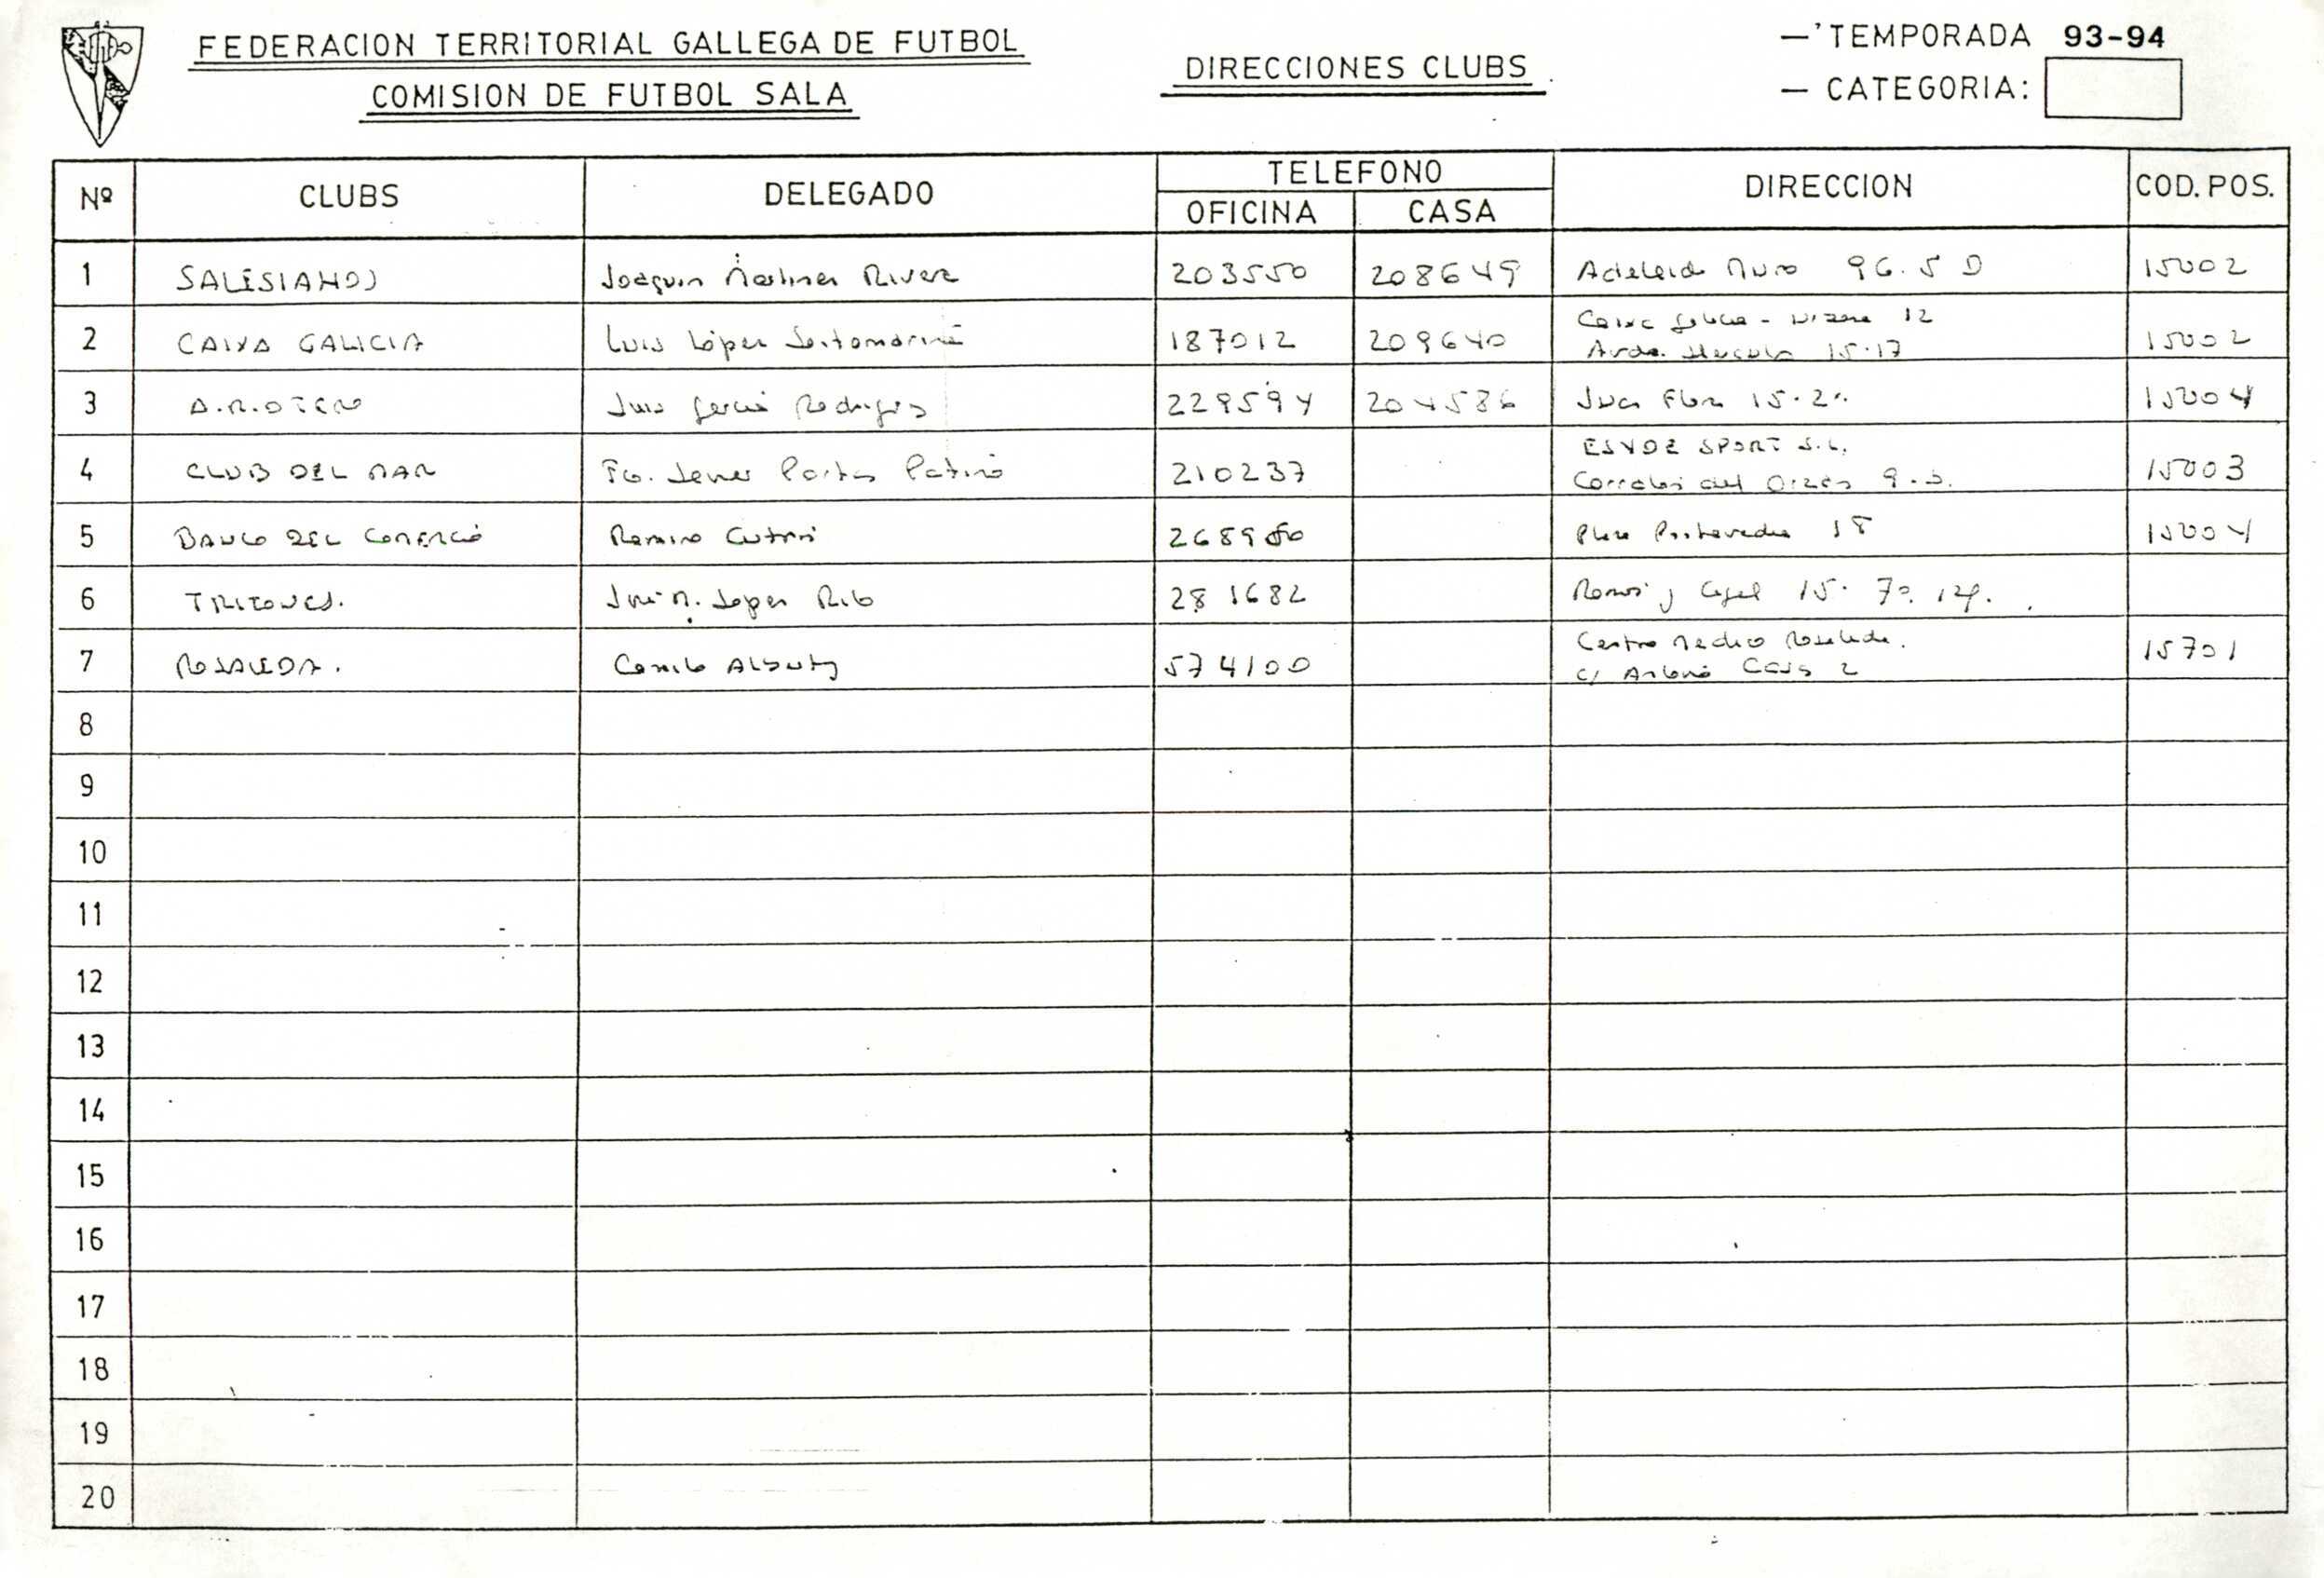 FEDERACION TERRITORIAL GALLEGA DE FUTBOL
COMISION DE FUTBOL SALA
DIRECCIONES CLUBS
— TEMPORADA 93-94
— CATEGORIA:
Nº CLUBS DELEGADO TELEFONO DIRECCION COD. POS.
OFICINA CASA
1 SALESIANOS Joaquin Martinez River 203550 208649 Adelaida Muro 96. 5 D 15002
2 CAIXA GALICIA Luis López 187012 209640 Caixa Galicia - 12
Avda. 15-17 15002
3 A.R. OTERO Luis García Rodriguez 229594 204586 Juan Flor 15-2º 15004
4 CLUB DEL MAR Fco. Javier Patiño 210237 ESYDE SPORT S.L.
del Orzan 9 15003
5 BANCO DEL COMERCIO Ramiro 2689 Plaza Pontevedra 18 15004
6 TRITONES. José M. Lopez 281682 Ramon y Cajal 15. 7º.
7 ROSALEDA. Camilo 574100 Centro Medico Rosaleda.
C/ Antonio Casas 2 15701
8
9
10
11
12
13
14
15
16
17
18
19
20